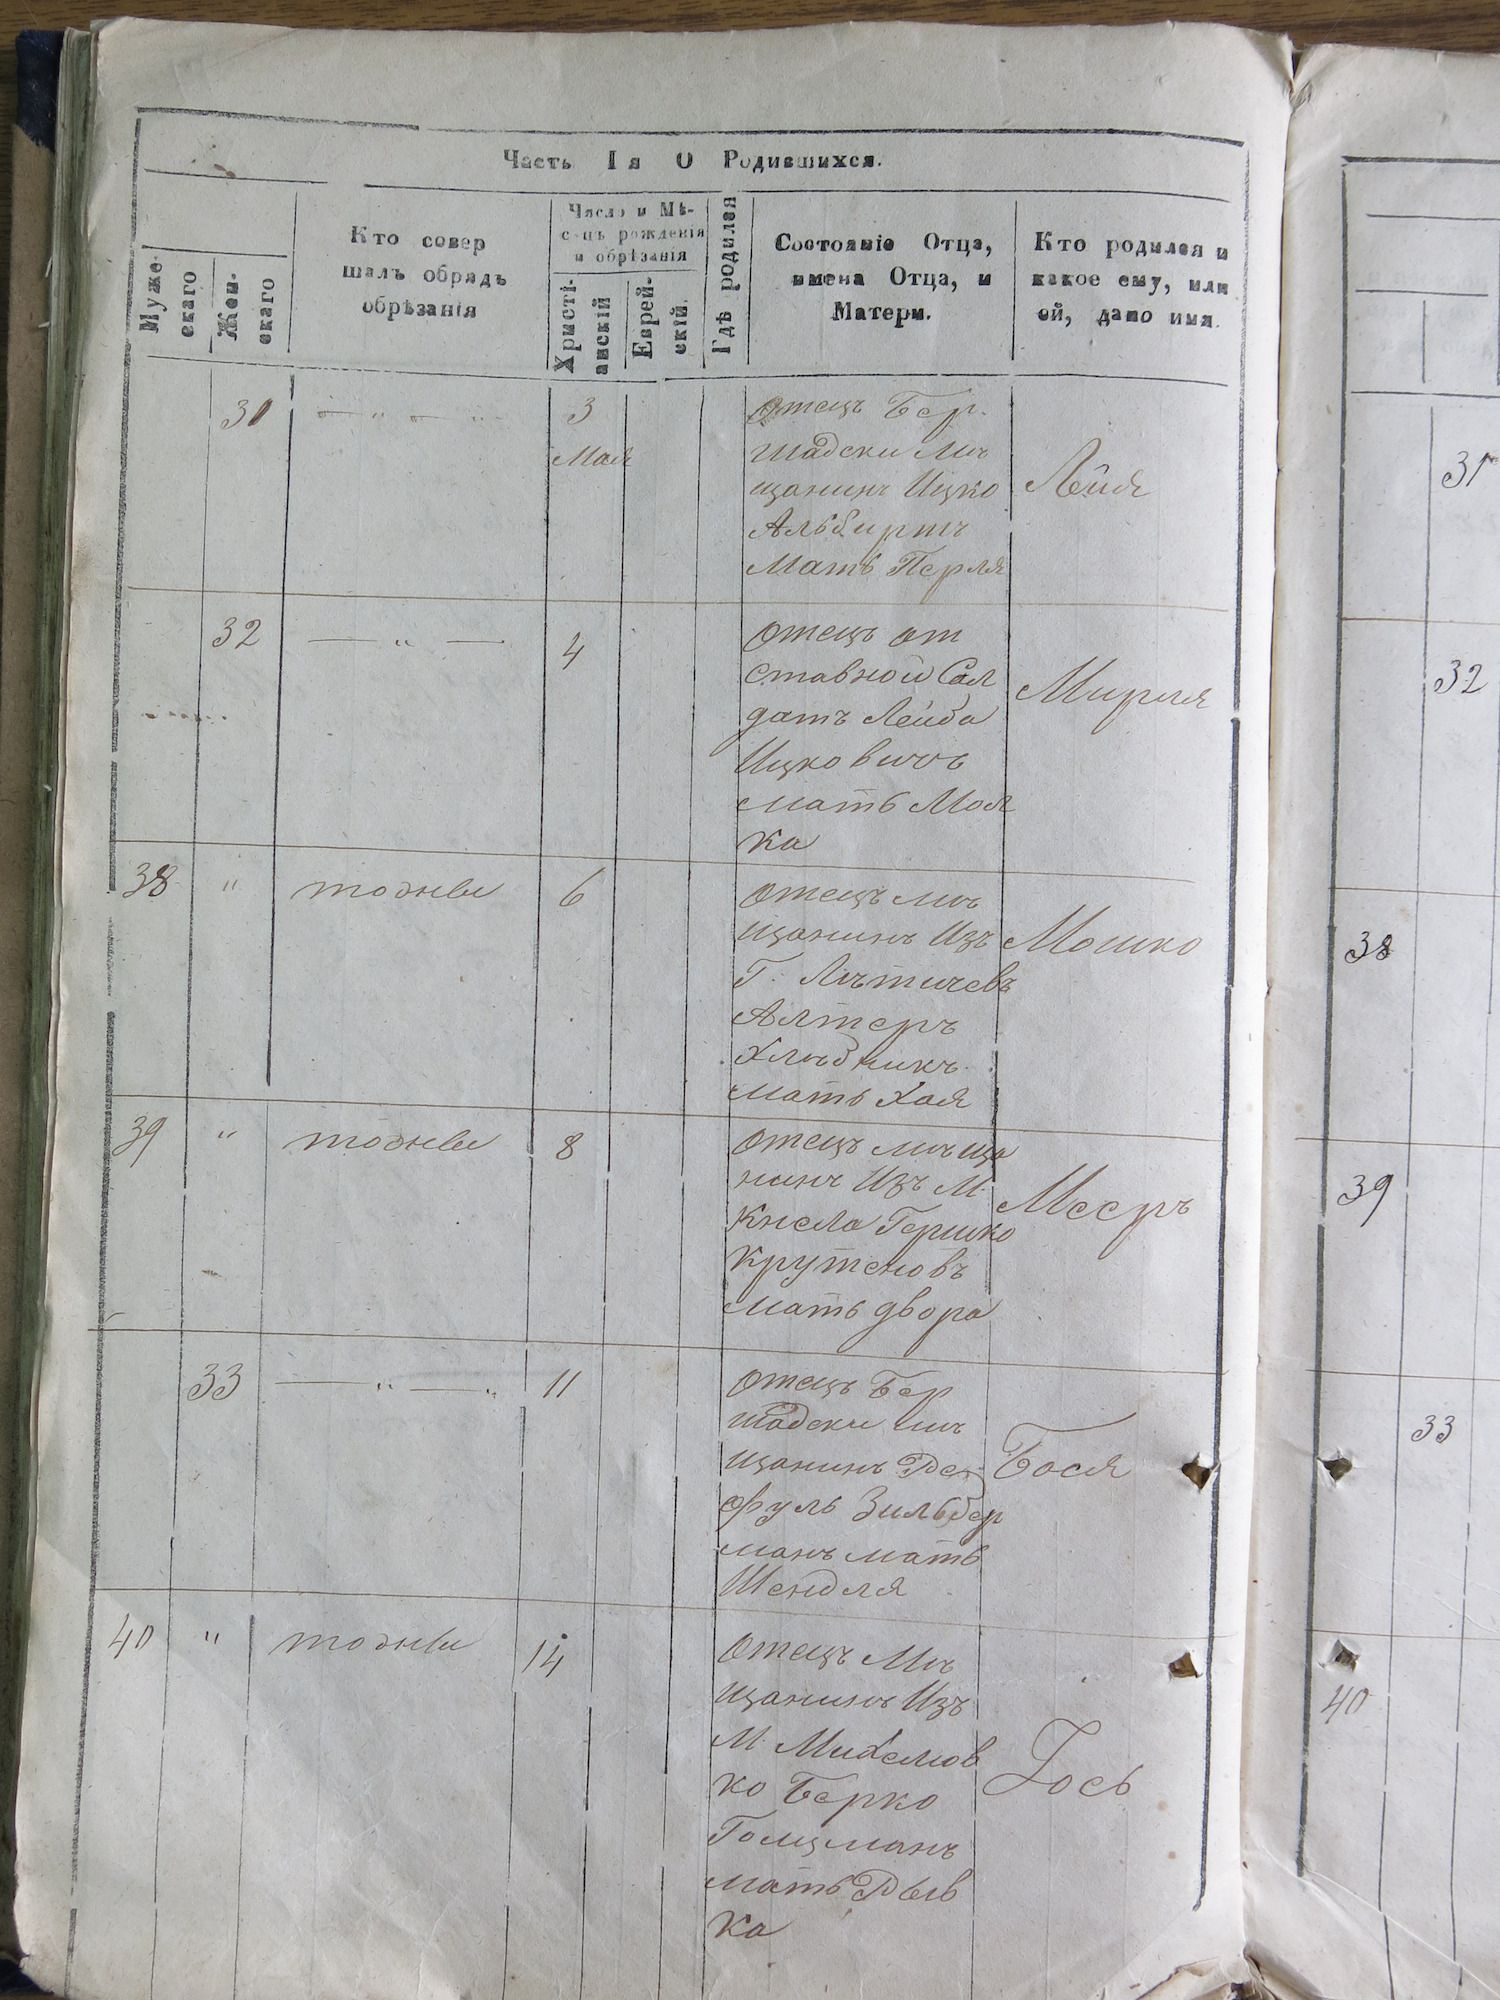 Часть Iя О Родившихся.
Муже-
скаго
Жен-
скаго
Кто совер
шалъ обрядъ
обрѣзанія
Число и Мѣ-
сяцъ рожденія
и обрѣзанія
Христі-
анскій
Еврей-
скій.
Гдѣ родился
Состояніе Отца,
имена Отца, и
Матери.
Кто родился и
какое ему, или
ей, дано имя.
31 — „ — „
3
Мая
Отецъ Бер-
шадски мѣ
щанинъ Ицко
Альбиртъ
Мать Перля
Лейя
32 — „ —
4
Отецъ от
ставной Сал
датъ Лейба
Ицковичъ
мать Мал
ка
Мирля
38 „ тодже 6
Отецъ мѣ
щанинъ Изъ
Г. Лѣтичевъ
Алтеръ
Хлѣбникъ
мать Хая
Мошко
39 „ тодже 8
Отецъ мѣща
нинъ Изъ М.
Кнела Гершко
Крутеновъ
мать двора
Мееръ
33 — „ — „ 11
Отецъ Бер
шадски мѣ
щанинъ Ре
фуль Зильбер
манъ мать
Шендля
Бося
40 „ тодже 14
Отецъ Мѣ
щанинъ Изъ
М. Михелов
ко Берко
Голцманъ
мать Рыв
ка
Іось
31
32
38
39
33
40